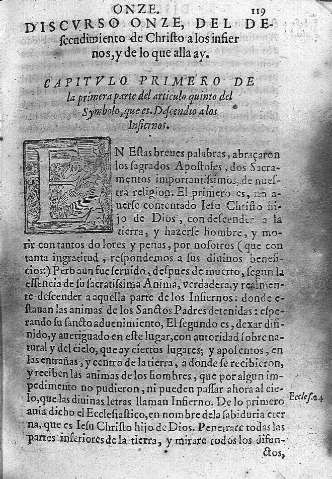 ONZE. 119
DISCVRSO ONZE, DEL DE-
scendimiento de Christo a los infier
nos, y de lo que alla ay.
CAPITVLO PRIMERO DE
la primera parte del articulo quinto del
Symbolo, que es. Descendio a los
Infiernos.
EN Estas breues palabras, abraçaron
los sagrados Apostoles, dos Sacra-
mentos importantissimos, de nues-
tra religion. El primero es, no a
uerse contentado Iesu Christo hi-
jo de Dios, con descender a la
tierra, y hazerse hombre, y mo-
rir con tantos dolores y penas, por nosotros (que con
tanta ingratitud, respondemos a sus diuinos benefi-
cios:) Pero aun fue seruido, despues de muerto, segun la
essencia de su sacratissima Anima, verdadera, y realmen-
te descender a aquella parte de los Infiernos: donde e-
stauan las animas de los Sanctos Padres detenidas: espe-
rando su sancto aduenimiento, El segundo es, dexar difi-
nido, y aueriguado en este lugar, con autoridad sobre na-
tural y del cielo, que ay ciertos lugares; y aposentos, en
las entrañas, y centro de la tierra, a donde se recibieron,
y reciben las animas de los hombres, que por algun im-
pedimento no pudieron, ni pueden passar ahora al cie-
lo, que las diuinas letras llaman Infierno. De lo primero
Eccles. 24.
ania dicho el Ecclesiastico, en nombre de la sabiduria eter
na, que es Iesu Christo hijo de Dios. Penetrare todas las
partes inferiores de la tierra, y mirare todos los difun-
ctos,